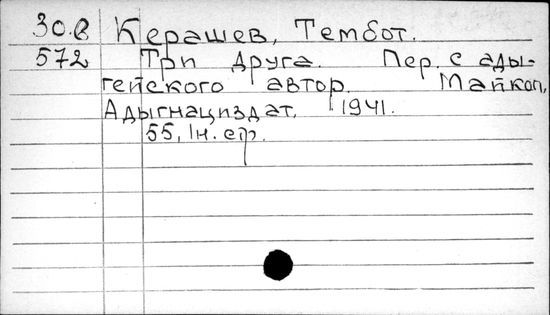 30.в Керашев, Тембот.
572 Три друга. Пер. с ады-
гейского автор. Майкоп,
Адыгнациздат, 1941.
55, 1н. с.